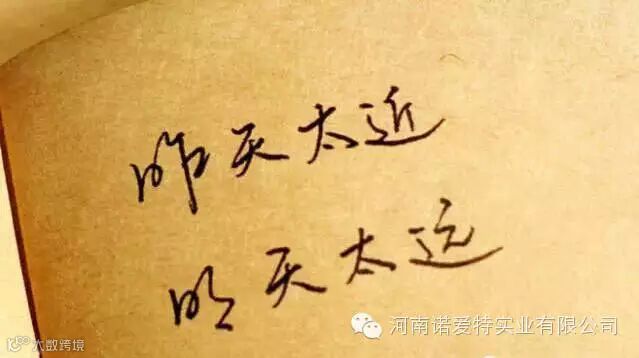 昨天太近
明天太远
河南诺爱特实业有限公司
大数跨境